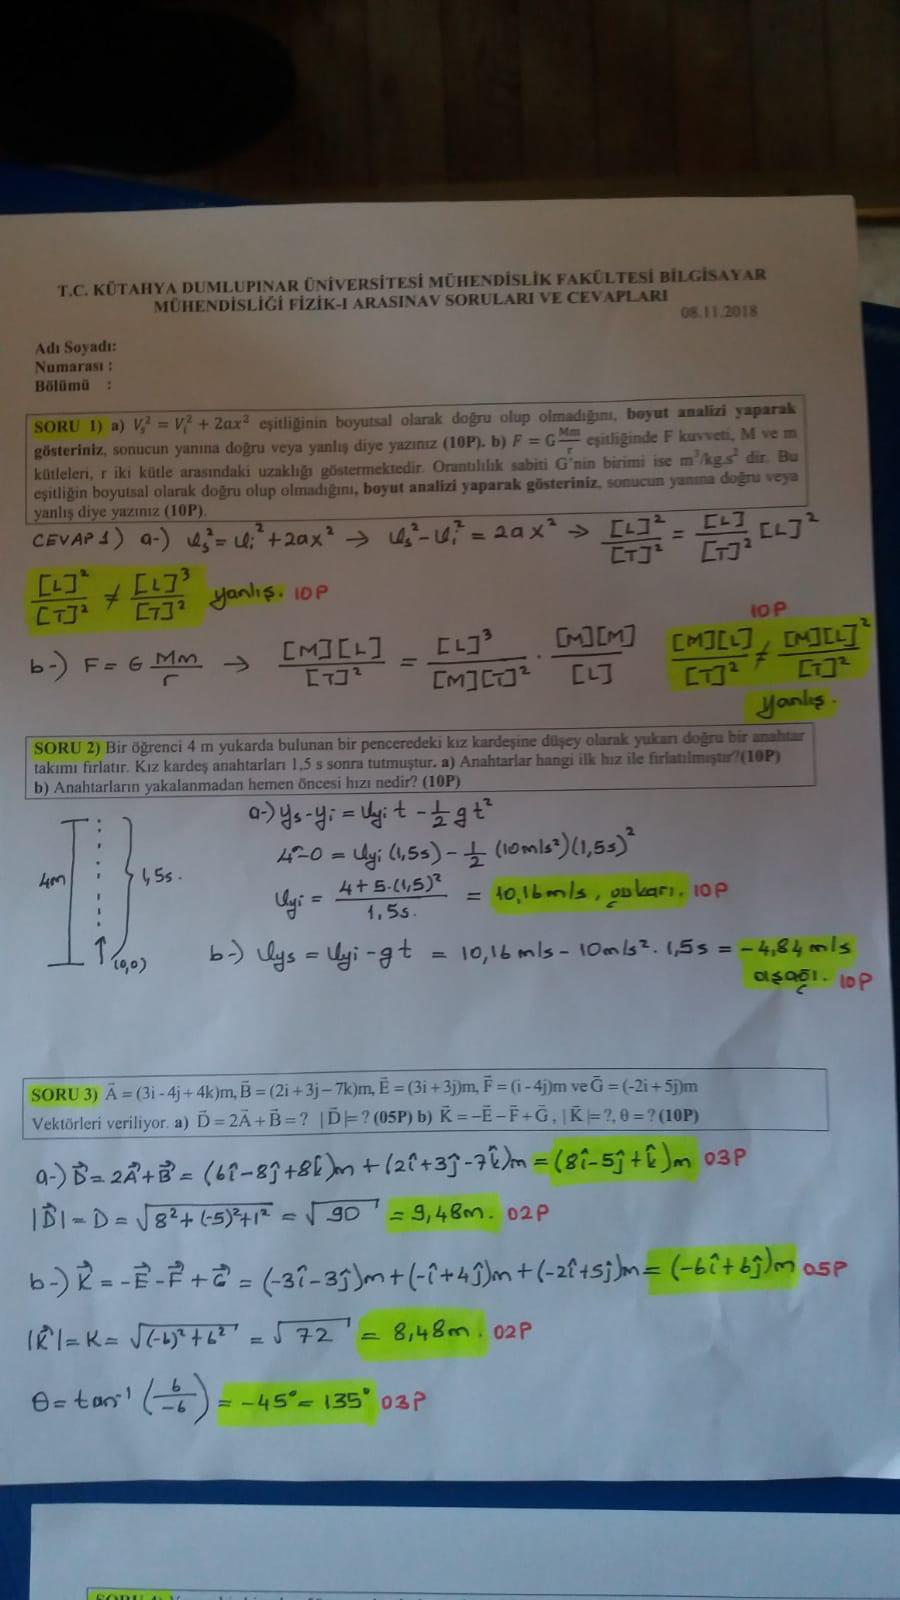 T.C. KÜTAHYA DUMLUPINAR ÜNİVERSİTESİ MÜHENDİSLİK FAKÜLTESİ BİLGİSAYAR
MÜHENDİSLİĞİ FİZİK-I ARASINAV SORULARI VE CEVAPLARI
08.11.2018
Adı Soyadı:
Numarası :
Bölümü :
SORU 1) a) Vs² = Vi² + 2ax² eşitliğinin boyutsal olarak doğru olup olmadığını, boyut analizi yaparak
gösteriniz, sonucun yanına doğru veya yanlış diye yazınız (10P). b) F = G Mm/r eşitliğinde F kuvveti, M ve m
kütleleri, r iki kütle arasındaki uzaklığı göstermektedir. Orantılılık sabiti G'nin birimi ise m³/kg.s² dir. Bu
eşitliğin boyutsal olarak doğru olup olmadığını, boyut analizi yaparak gösteriniz, sonucun yanına doğru veya
yanlış diye yazınız (10P).
CEVAP 1) a-) Vs² = Vi² + 2ax² → Vs² - Vi² = 2ax² → [L]²/[T]² = [L]/[T]² [L]²
[L]²/[T]² ≠ [L]³/[T]² yanlış. 10P
b-) F = G Mm/r → [M][L]/[T]² = [L]³/[M][T]² . [M][M]/[L] [M][L]/[T]² ≠ [M][L]²/[T]² 10P
yanlış.
SORU 2) Bir öğrenci 4 m yukarda bulunan bir penceredeki kız kardeşine düşey olarak yukarı doğru bir anahtar
takımı fırlatır. Kız kardeş anahtarları 1,5 s sonra tutmuştur. a) Anahtarlar hangi ilk hız ile fırlatılmıştır?(10P)
b) Anahtarların yakalanmadan hemen öncesi hızı nedir? (10P)
a-) ys - yi = Vyi t - 1/2 gt²
4-0 = Vyi (1,5s) - 1/2 (10m/s²)(1,5s)²
4m
1,5s.
(0,0)
Vyi = 4+5.(1,5)²/1,5s. = 10,16m/s, yukarı. 10P
b-) Vys = Vyi - gt = 10,16 m/s - 10m/s². 1,5 s = -4,84 m/s
aşağı. 10P
SORU 3) A⃗ = (3i - 4j + 4k)m, B⃗ = (2i + 3j - 7k)m, E⃗ = (3i + 3j)m, F⃗ = (i - 4j)m ve G⃗ = (-2i + 5j)m
Vektörleri veriliyor. a) D⃗ = 2A⃗ + B⃗ = ? |D⃗| = ? (05P) b) K⃗ = -E⃗ - F⃗ + G⃗ , |K⃗| = ?, θ = ? (10P)
a-) D⃗ = 2A⃗ + B⃗ = (6î - 8ĵ + 8k̂)m + (2î + 3ĵ - 7k̂)m = (8î - 5ĵ + k̂)m 03P
|D⃗| = D = √8² + (-5)² + 1² = √90 = 9,48m. 02P
b-) K⃗ = -E⃗ - F⃗ + G⃗ = (-3î - 3ĵ)m + (-î + 4ĵ)m + (-2î + 5ĵ)m = (-6î + 6ĵ)m 05P
|K⃗| = K = √(-6)² + 6² = √72 = 8,48m. 02P
θ = tan⁻¹ (6/-6) = -45° = 135° 03P